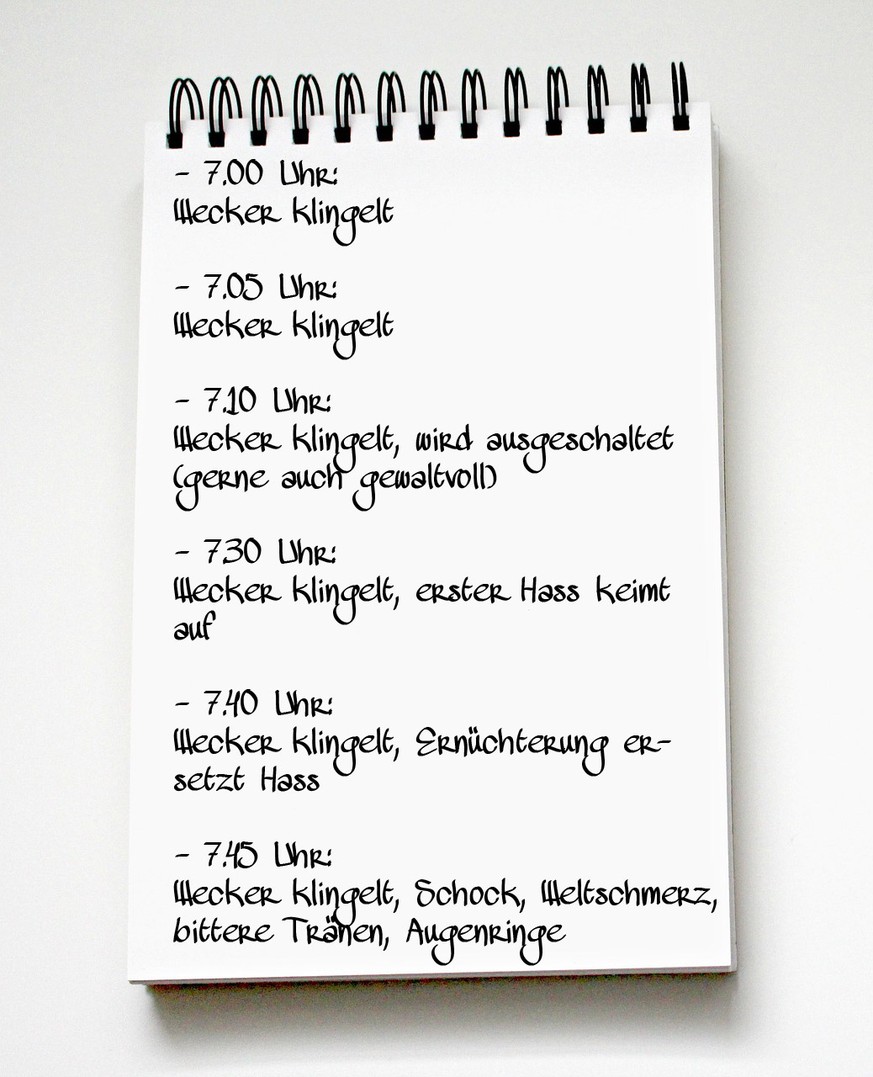 - 7.00 Uhr:
Wecker klingelt
- 7.05 Uhr:
Wecker klingelt
- 7.10 Uhr:
Wecker klingelt, wird ausgeschaltet
(gerne auch gewaltvoll)
- 7.30 Uhr:
Wecker klingelt, erster Hass keimt
auf
- 7.40 Uhr:
Wecker klingelt, Ernüchterung er-
setzt Hass
- 7.45 Uhr:
Wecker klingelt, Schock, Weltschmerz,
bittere Tränen, Augenringe